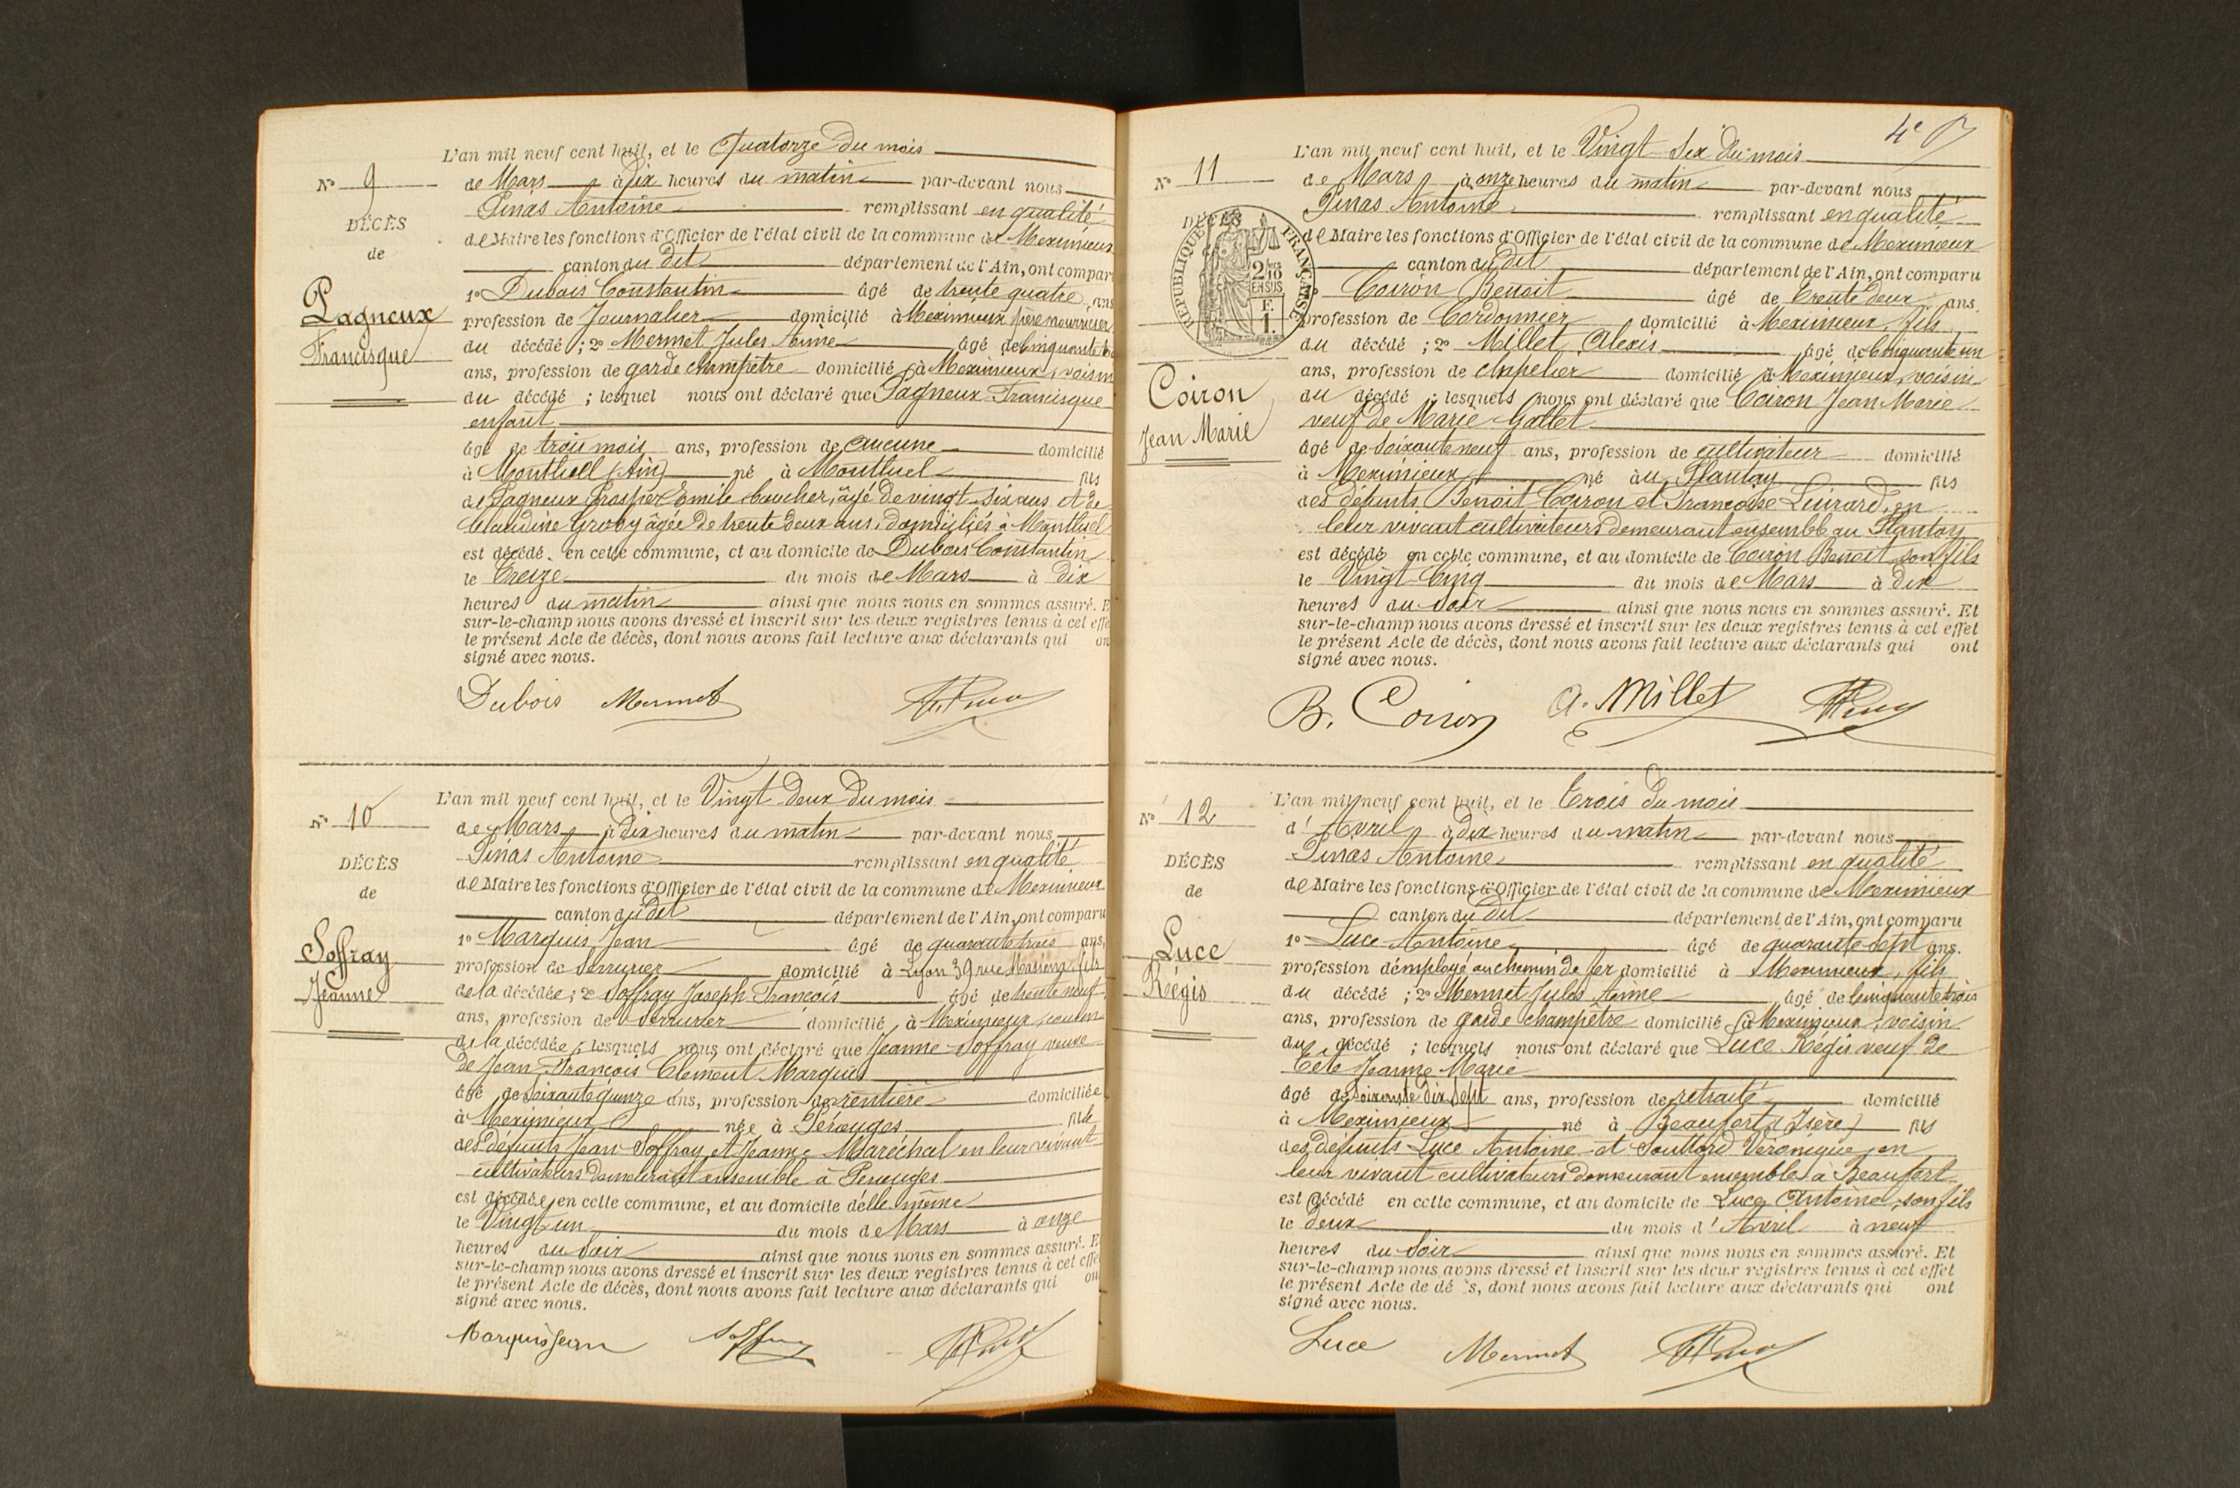 L'an mil neuf cent huit, et le Quatorze du mois
N° 9
de Mars à dix heures du matin par-devant nous
Pinas Antoine remplissant en qualité
DÉCÈS
de Maire les fonctions d'Officier de l'état civil de la commune de Meximieux
de
canton du dit département de l'Ain, ont compar
1° Dubois Constantin âgé de trente quatre ans
Pagneux
profession de Journalier domicilié à Meximieux père nourricier
Francisque
du décédé ; 2° Mermet Jules Aimé âgé de cinquante
ans, profession de garde champêtre domicilié à Meximieux, voisin
du décédé ; lesquel nous ont déclaré que Pagneux Francisque
enfant
âgé de trois mois ans, profession de aucune domicilié
à Montluel (Ain) né à Montluel fils
de Pagneux Prosper Emile boucher, âgé de vingt six ans et de
Claudine Groby âgée de trente deux ans, domiciliés à Montluel
est décédé en cette commune, et au domicile de Dubois Constantin
le Treize du mois de Mars à dix
heures du matin ainsi que nous nous en sommes assuré. E
sur-le-champ nous avons dressé et inscrit sur les deux registres tenus à cet effe
le présent Acte de décès, dont nous avons fait lecture aux déclarants qui on
signé avec nous.
Dubois Mermet
L'an mil neuf cent huit, et le Vingt deux du mois
N° 10
de Mars à dix heures du matin par-devant nous
Pinas Antoine remplissant en qualité
DÉCÈS
de Maire les fonctions d'Officier de l'état civil de la commune de Meximieux
de
canton du dit département de l'Ain, ont comparu
1° Marquis Jean âgé de quarante trois ans,
Soffray
profession de serrurier domicilié à Lyon 39 rue fils
Jeanne
de la décédée ; 2° Soffray Joseph François âgé de trente neuf
ans, profession de serrurier domicilié à Meximieux, cousin
de la décédée ; lesquels nous ont déclaré que Jeanne Soffray veuve
de Jean François Clément Marquis
âgé de soixante quinze ans, profession de rentière domiciliée
à Meximieux née à Pérouges fille
des défunts Jean Soffray et Jeanne Maréchal en leur vivant
cultivateurs demeurant ensemble à Pérouges
est décédée en cette commune, et au domicile d'elle même
le Vingt un du mois de Mars à onze
heures du soir ainsi que nous nous en sommes assuré. E
sur-le-champ nous avons dressé et inscrit sur les deux registres tenus à cet effe
le présent Acte de décès, dont nous avons fait lecture aux déclarants qui on
signé avec nous.
Marquis Jean Soffray
4e
L'an mil neuf cent huit, et le Vingt Six du mois
N° 11
de Mars à onze heures du matin par-devant nous
Pinas Antoine remplissant en qualité
DÉCÈS
de Maire les fonctions d'Officier de l'état civil de la commune de Meximieux
RÉPUBLIQUE FRANÇAISE
2/10 EN SUS
F. 1.
canton du dit département de l'Ain, ont comparu
Coiron Benoit âgé de trente deux ans
profession de Cordonnier domicilié à Meximieux, fils
du décédé ; 2° Millet Alexis âgé de cinquante un
Coiron
Jean Marie
ans, profession de chapelier domicilié à Meximieux, voisin
du décédé ; lesquels nous ont déclaré que Coiron Jean Marie
veuf de Marie Gallet
âgé de soixante neuf ans, profession de cultivateur domicilié
à Meximieux né au Plantay fils
des défunts Benoit Coiron et Françoise Luirard en
leur vivant cultivateurs demeurant ensemble au Plantay
est décédé en cette commune, et au domicile de Coiron Benoit son fils
le Vingt Cinq du mois de Mars à dix
heures du soir ainsi que nous nous en sommes assuré. Et
sur-le-champ nous avons dressé et inscrit sur les deux registres tenus à cet effet
le présent Acte de décès, dont nous avons fait lecture aux déclarants qui ont
signé avec nous.
B. Coiron A. Millet
L'an mil neuf cent huit, et le Trois du mois
N° 12
d'Avril à dix heures du matin par-devant nous
Pinas Antoine remplissant en qualité
DÉCÈS
de Maire les fonctions d'Officier de l'état civil de la commune de Meximieux
de
canton du dit département de l'Ain, ont comparu
Luce
1° Luce Antoine âgé de quarante-sept ans.
Régis
profession d'employé au chemin de fer domicilié à Meximieux, fils
du décédé ; 2° Mermet Jules Aimé âgé de cinquante trois
ans, profession de garde champêtre domicilié à Meximieux, voisin
du décédé ; lesquels nous ont déclaré que Luce Régis veuf de
Tête Jeanne Marie
âgé de soixante dix sept ans, profession de retraité domicilié
à Meximieux né à Beaufort (Isère) fils
des défunts Luce Antoine et Souttard Véronique en
leur vivant cultivateurs demeurant ensemble à Beaufort
est décédé en cette commune, et au domicile de Luce Antoine, son fils
le deux du mois d'Avril à neuf
heures du soir ainsi que nous nous en sommes assuré. Et
sur-le-champ nous avons dressé et inscrit sur les deux registres tenus à cet effet
le présent Acte de dé s, dont nous avons fait lecture aux déclarants qui ont
signé avec nous.
Luce Mermet